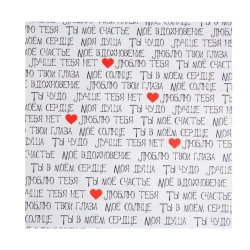 ЛУЧШЕ ТЕБЯ НЕТ ЛЮБЛЮ ТЕБЯ
ТЫ МОЁ СЧАСТЬЕ МОЁ ВДОХНОВЕНИЕ
В МОЁМ СЕРДЦЕ МОЯ ДУША ТЫ ЧУДО
ЛУЧШЕ ТЕБЯ НЕТ ЛЮБЛЮ ТВОИ ГЛАЗА
ТВОИ ГЛАЗА МОЁ СОЛНЦЕ ТЫ В МОЁМ СЕРДЦЕ
ТЫ ЧУДО ЛУЧШЕ ТЕБЯ НЕТ
ЛЮБЛЮ ТЕБЯ ТЫ МОЁ СЧАСТЬЕ
МОЁ ВДОХНОВЕНИЕ ЛЮБЛЮ ТВОИ ГЛАЗА МОЁ СОЛНЦЕ
ТЫ В МОЁМ СЕРДЦЕ МОЯ ДУША ТЫ ЧУДО
ЛУЧШЕ ТЕБЯ НЕТ ЛЮБЛЮ ТЕБЯ
ТЫ МОЁ СЧАСТЬЕ МОЁ ВДОХНОВЕНИЕ
ЛЮБЛЮ ТВОИ ГЛАЗА МОЁ СОЛНЦЕ ТЫ В МОЁМ
СЕРДЦЕ МОЯ ДУША ТЫ ЧУДО ЛУЧШЕ ТЕБЯ
НЕТ ЛЮБЛЮ ТЕБЯ ТЫ МОЁ СЧАСТЬЕ МОЁ
ВДОХНОВЕНИЕ ЛЮБЛЮ ТВОИ ГЛАЗА МОЁ
СОЛНЦЕ ТЫ В МОЁМ СЕРДЦЕ МОЯ ДУША ТЫ